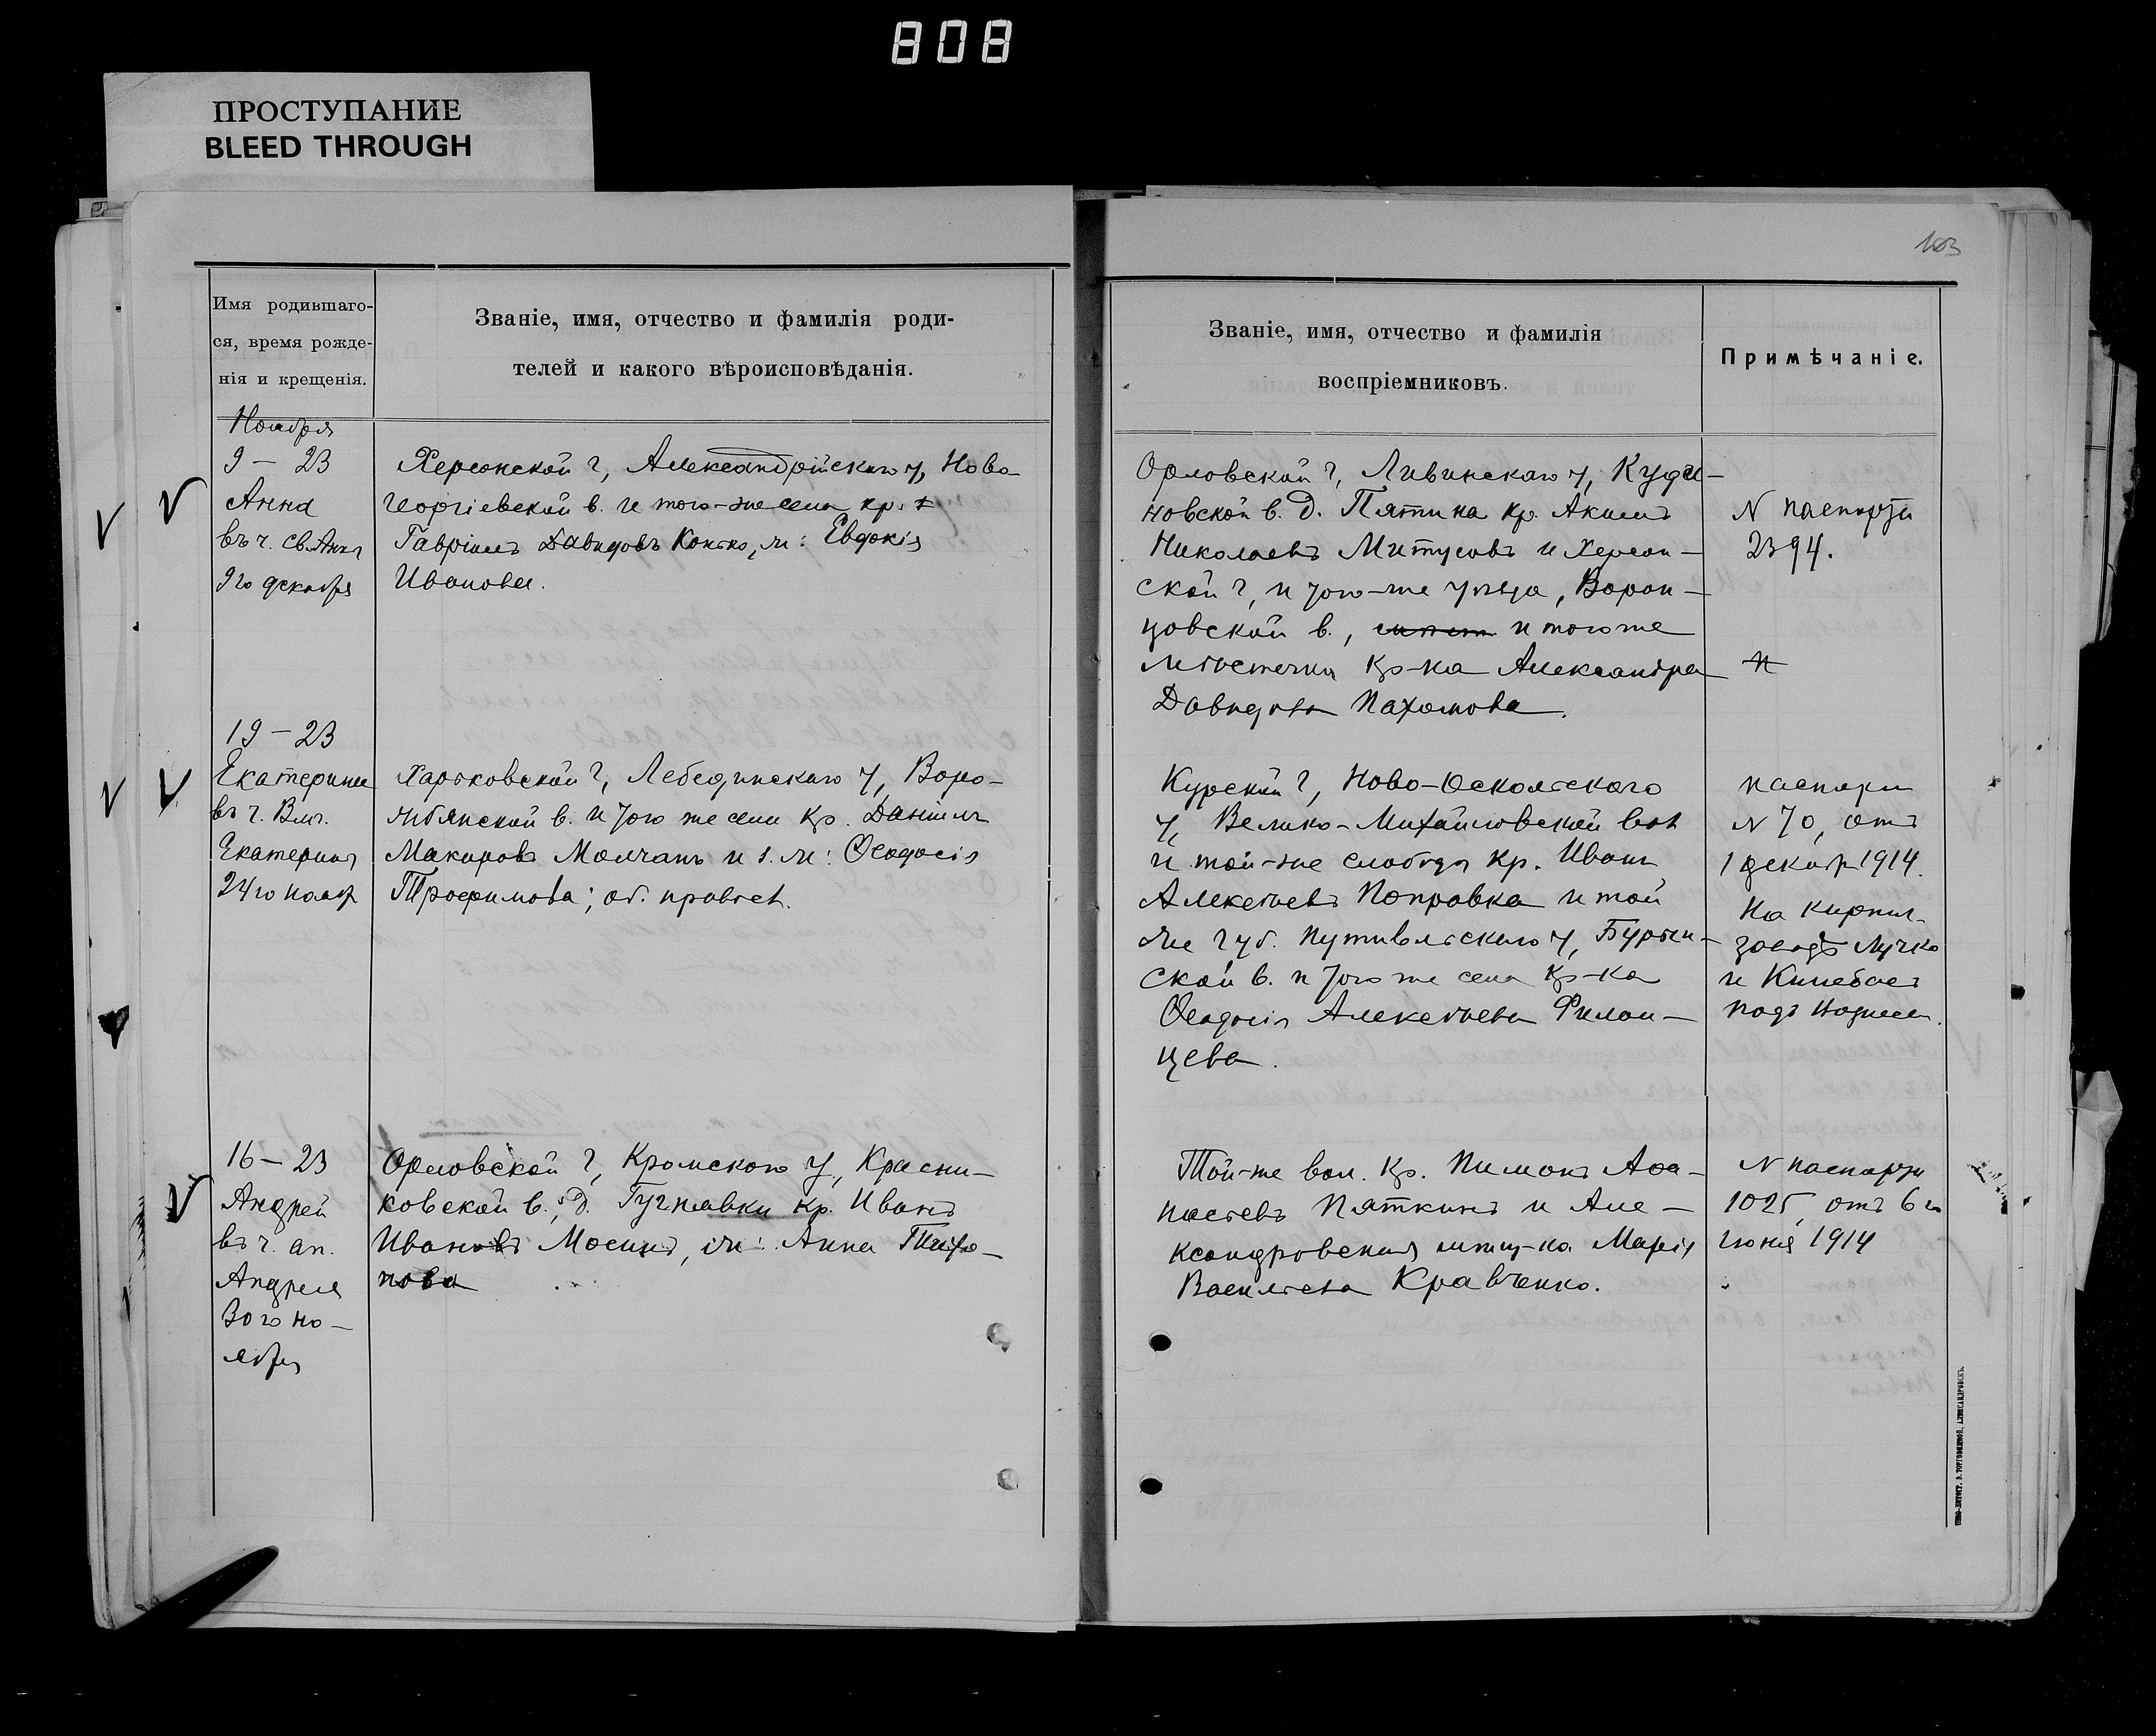 808
ПРОСТУПАНИЕ
BLEED THROUGH
103
Имя родившаго-
ся, время рожде-
нія и крещенія.
Званіе, имя, отчество и фамилія роди-
телей и какого вѣроисповѣданія.
Званіе, имя, отчество и фамилія
воспріемниковъ.
Примѣчаніе.
Ноября
9 – 23
Анна
въ ч. св. Анны
9го декабря
Херсонской г., Александрійскаго у., Ново-
георгіевской в. и того-же села кр.
Гавріилъ Давидовъ Конько, ж: Евдокія
Иванова.
Орловской г., Ливинскаго у., Куди-
новской в. д. Пятина кр. Акимъ
Николаевъ Митусовъ и Херсон-
ской г., и того-же уѣзда, Ворон-
цовской в., и того же
мѣстечка кр-ка Александра
Давидова Пахомова.
N паспорта
2394.
19 – 23
Екатерина
въ ч. Влмч.
Екатерины
24го нояб
Харьковской г., Лебединскаго у., Воро-
жбянской в. и того же села кр. Даніилъ
Макаровъ Молчанъ и з. ж: Ѳеодосія
Трофимова; об. правосл.
Курской г., Ново-Оскольскаго
у., Велико-Михайловской вол
и той-же слободы кр. Иванъ
Алексѣевъ Поправка и той
же губ. Путивльскаго у., Бурын-
ской в. и того же села кр-ка
Ѳеодосія Алексѣева Филон-
цева.
паспорт
N 70, отъ
1 декабр 1914.
На кирпич.
заводѣ Лучко
и
подъ
16 – 23
Андрей
въ ч. ап.
Андрея
30го но-
ября
Орловской г., Кромскаго у., Красни-
ковской в., д. Гучнявки кр. Иванъ
Ивановъ Мосинъ, ж: Анна Тихо-
нова
Той-же вол. кр. Пимонъ Аѳа-
насьевъ Пяткинъ и Але-
ксандровская мѣщ-ка Марія
Васильева Кравченко.
N паспорта
1025, отъ 6го
Іюня 1914